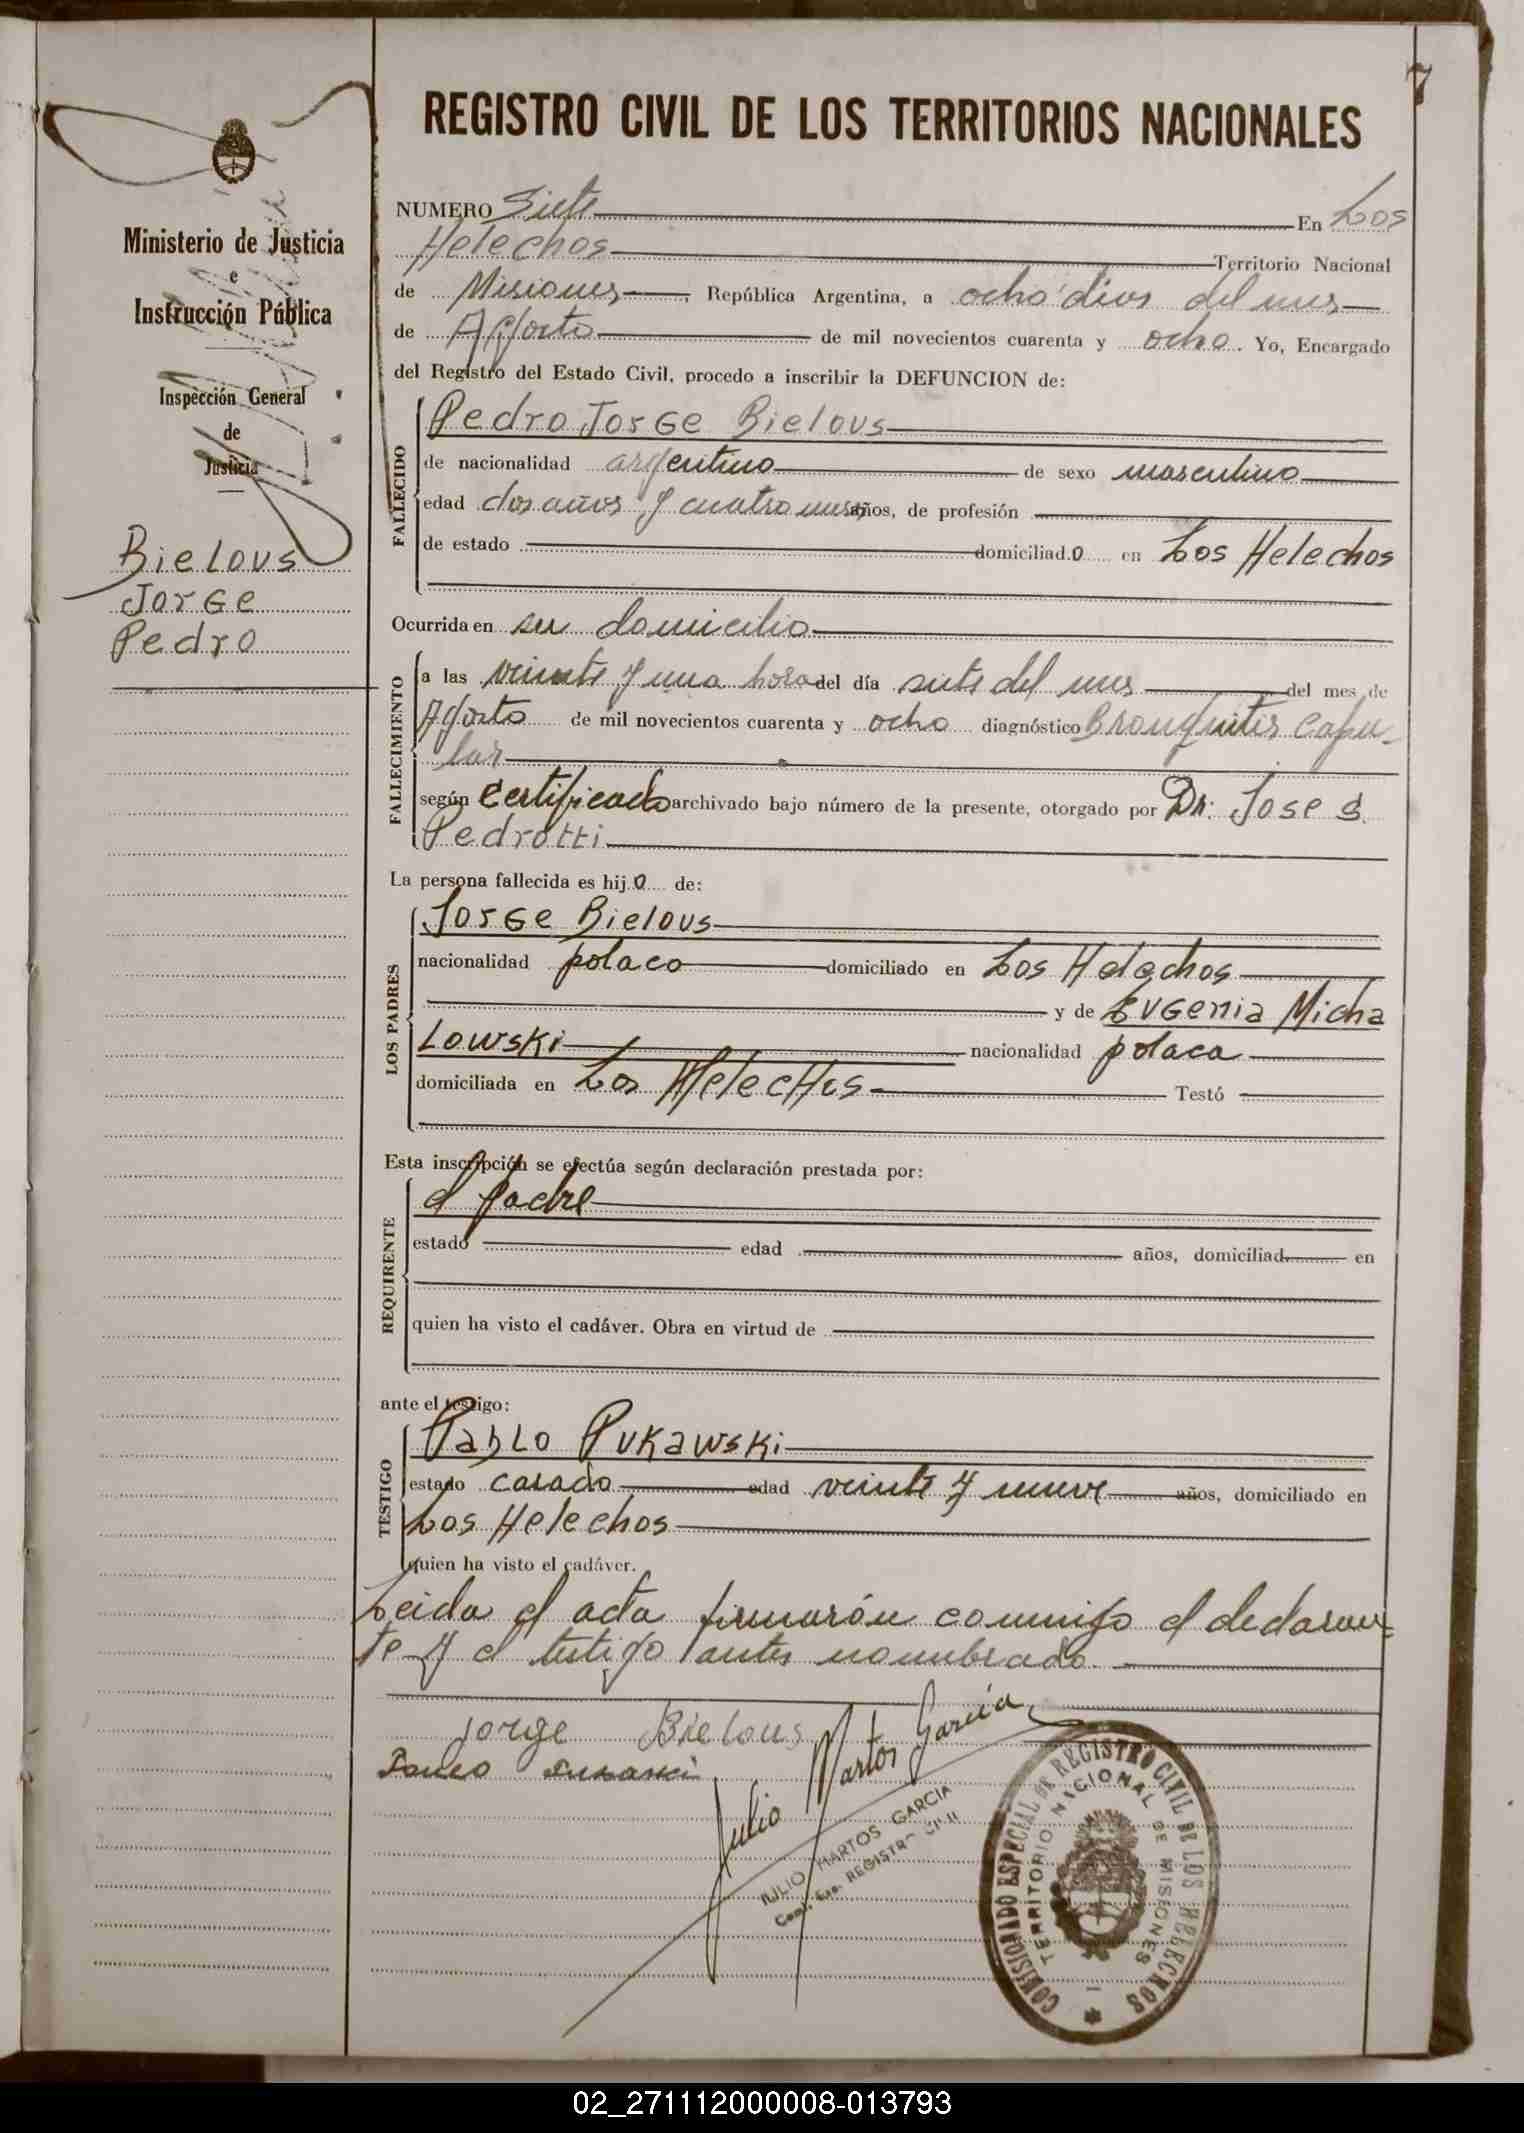 7
REGISTRO CIVIL DE LOS TERRITORIOS NACIONALES
Ministerio de Justicia
e
Instrucción Pública
Inspección General
de
Justicia
Bielous
Jorge
Pedro
NUMERO Siete En Los
Helechos Territorio Nacional
de Misiones, República Argentina, a ocho dias del mes
de Agosto de mil novecientos cuarenta y ocho. Yo, Encargado
del Registro del Estado Civil, procedo a inscribir la DEFUNCION de:
FALLECIDO
Pedro Jorge Bielous
de nacionalidad argentino de sexo masculino
edad dos años y cuatro meses años, de profesión
de estado domiciliad.o en Los Helechos
Ocurrida en su domicilio
FALLECIMIENTO
a las veinte y una hora del día siete del mes del mes de
Agosto de mil novecientos cuarenta y ocho diagnóstico Bronquitis capu-
lar
según certificado archivado bajo número de la presente, otorgado por Dr. Jose S.
Pedrotti
La persona fallecida es hij.o de:
LOS PADRES
Jorge Bielous
nacionalidad polaco domiciliado en Los Helechos
y de Eugenia Micha
Lowski nacionalidad polaca
domiciliada en Los Helechos Testó
Esta inscripción se efectúa según declaración prestada por:
REQUIRENTE
el padre
estado edad años, domiciliad en
quien ha visto el cadáver. Obra en virtud de
ante el testigo:
TESTIGO
Pablo Pukawski
estado casado edad veinte y nueve años, domiciliado en
Los Helechos
quien ha visto el cadáver.
Leida el acta firmarón conmigo el declaran=
te y el testigo antes nombrado.
Jorge Bielous
Julio Martos García
JULIO MARTOS GARCIA
REGISTRO CIVIL
COMISIONADO ESPECIAL DE REGISTRO CIVIL DE LOS HELECHOS
TERRITORIO NACIONAL DE MISIONES
02_271112000008-013793